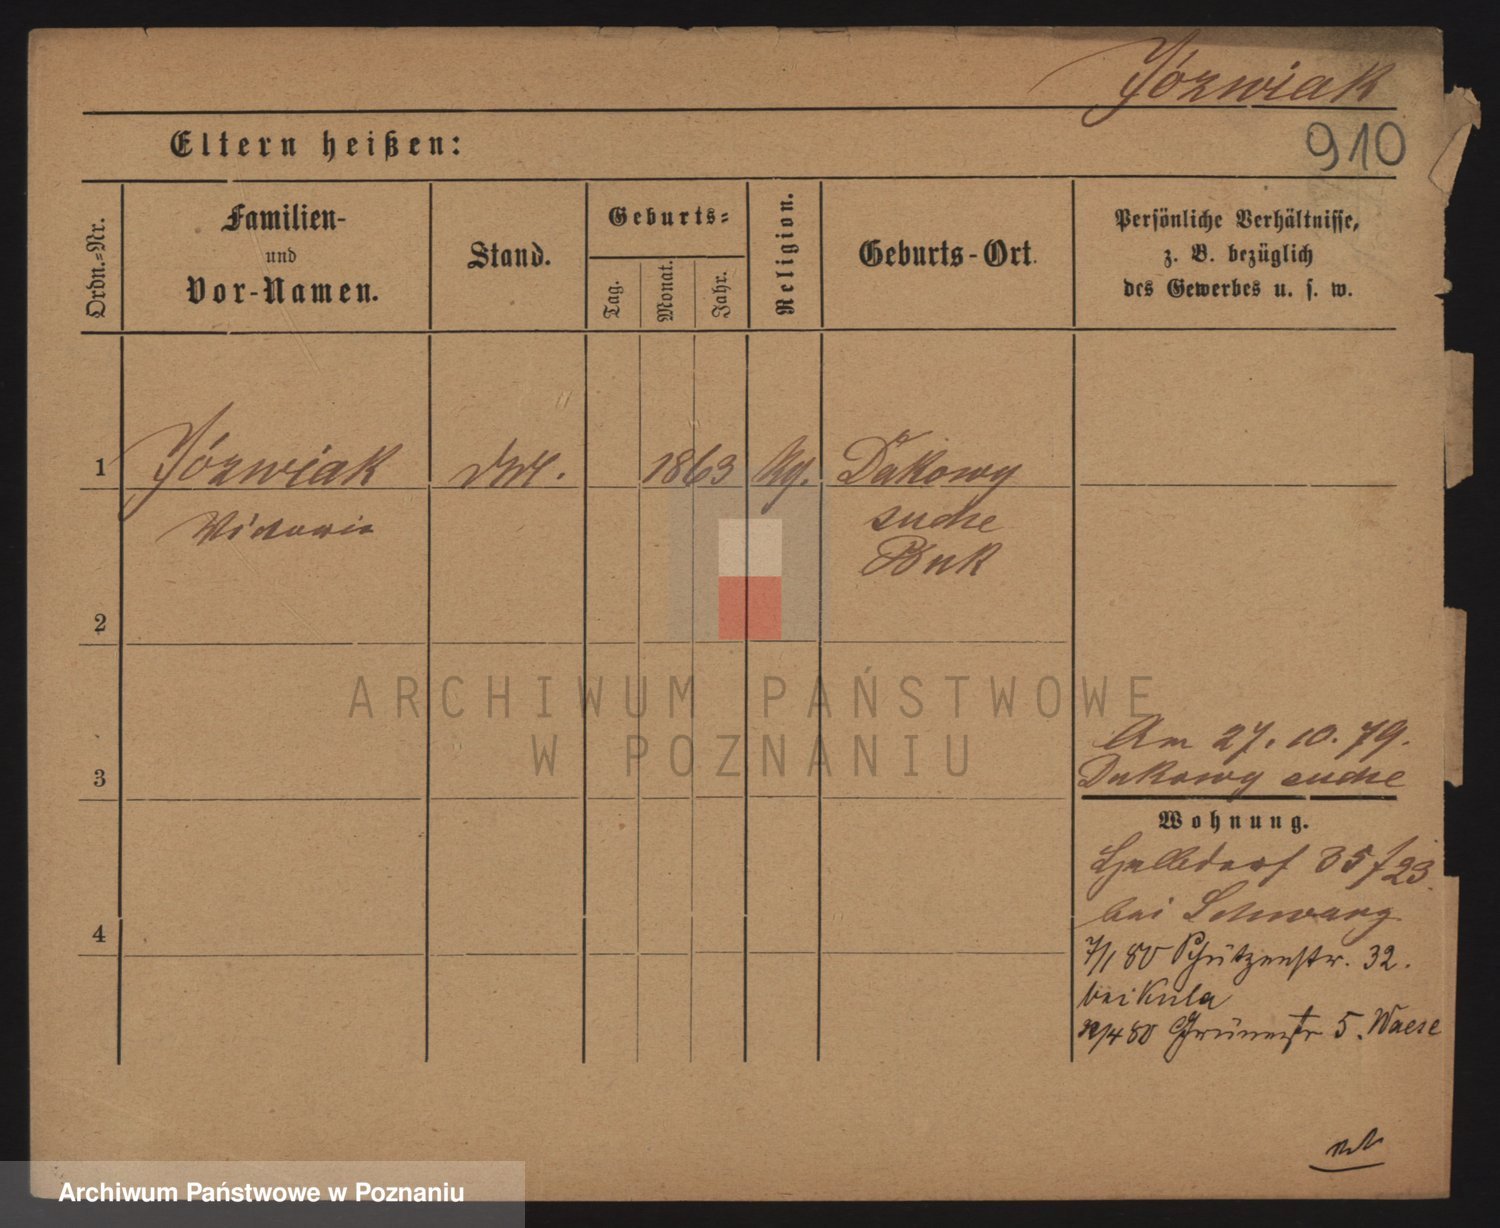 Józwiak
910
Eltern heißen:
Ordn.-Nr.
Familien-
und
Vor-Namen.
Stand.
Geburts-
Tag.
Monat.
Jahr.
Religion.
Geburts-Ort.
Persönliche Verhältnisse,
z. B. bezüglich
des Gewerbes u. s. w.
1 Józwiak 1863 Dakowy
suche
Buk
2
3
4
Am 27. 10. 79.
Dakowy suche
Wohnung.
Halbdorf 35
bei
7/1 80 Schützenstr. 32.
bei Kula
80 Grünestr 5. Waese
ARCHIWUM PAŃSTWOWE
W POZNANIU
Archiwum Państwowe w Poznaniu